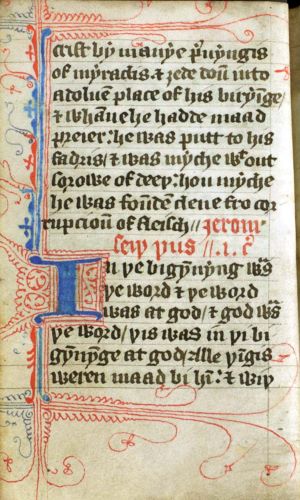 crist by manye p̉uyngis
of myraclis & ȝede doū into
a doluen place of his biryinge/
& whāne he hadde maad
preier: he was putt to his
fadris/ & was myche wᵗ out
sorowe of deey: hou myche
he was foūde clene fro cor
rupcioū of fleisch // Jerom
seiy yus // .i. cᵒ
In ye bigynnyng was
ye word & ye word
was at god/ & god was
ye word/ yis was in yͤ bi
gynnynge at god/ Alle yīgis
weren maad bi hī: & wiy